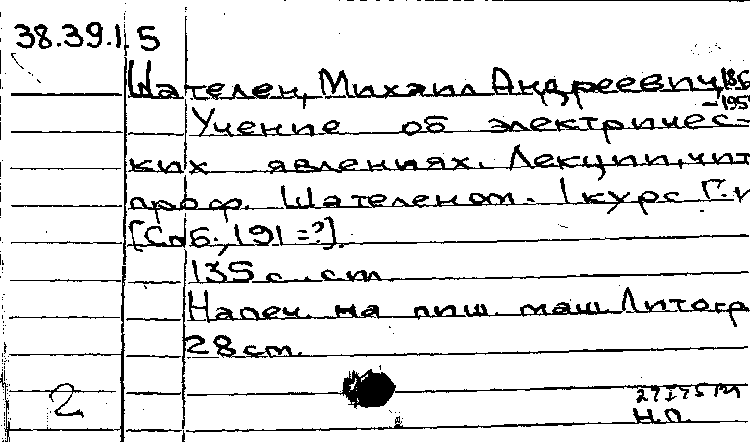 38.39.1.5
Шателен, Михаил Андреевич, 186
-195
Учение об электричес-
ких явлениях. Лекции, чит
проф. Шателеном. I курс Г.И
[Спб., 191=?].
135 с. ст.
Напеч. на пиш. маш. Литогр
28 см.
2
Н.П.